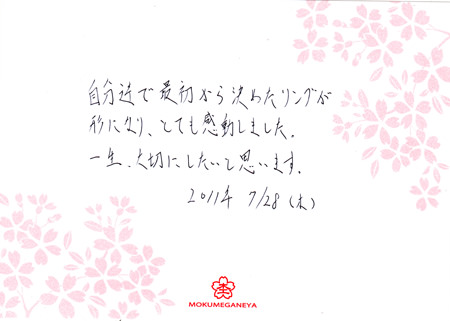 自分達で最初から決めたリングが
形になり、とても感動しました。
一生、大切にしたいと思います。
2011年 7/28 (木)
MOKUMEGANEYA